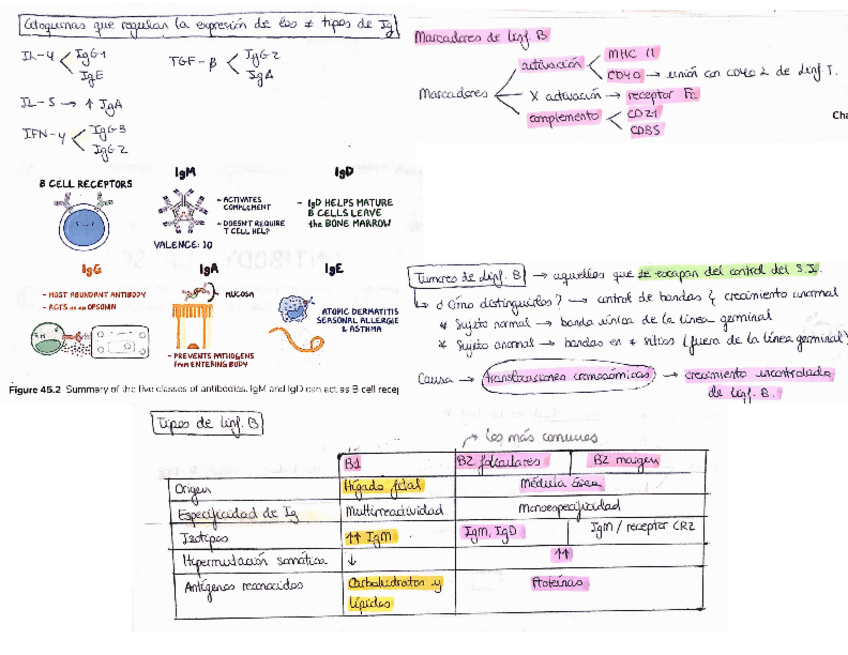 Citoquinas que regulan la expresión de los ≠ tipos de Ig
IL-4 < IgG1
IgE
TGF-β < IgG2
IgA
IL-5 → ↑ IgA
IFN-γ < IgG3
IgG2
Marcadores de linf. B
Marcadores
activación < MHC II
CD40 → unión con CD40L de linf T.
X activación → receptor Fc
complemento < CD21
CD85
Cha
B CELL RECEPTORS
IgM
- ACTIVATES COMPLEMENT
- DOESN'T REQUIRE T CELL HELP
VALENCE: 10
IgD
- IgD HELPS MATURE B CELLS LEAVE the BONE MARROW
IgG
- MOST ABUNDANT ANTIBODY
- ACTS as an OPSONIN
IgA
MUCOSA
- PREVENTS PATHOGENS from ENTERING BODY
IgE
ATOPIC DERMATITIS
SEASONAL ALLERGIE
& ASTHMA
Figure 45.2 Summary of the five classes of antibodies. IgM and IgD can act as B cell recep
Tumores de linf. B → aquellos que se escapan del control del S.I.
↳ ¿Cómo distinguirlos? → control de bandas y crecimiento anormal
* Sujeto normal → banda única de la línea germinal
* Sujeto anormal → bandas en ≠ sitios (fuera de la línea germinal)
Causa → translocaciones cromosómicas → crecimiento incontrolado
de linf. B.
Tipos de linf. B
→ los más comunes
B1 B2 foliculares B2 margen
Origen Hígado fetal Médula ósea
Especificidad de Ig Multirreactividad Monoespecificidad
Isotipos ↑↑ IgM IgM, IgD IgM / receptor CR2
Hipermutación somática ↓ ↑↑
Antígenos reconocidos Carbohidratos y lípidos Proteínas